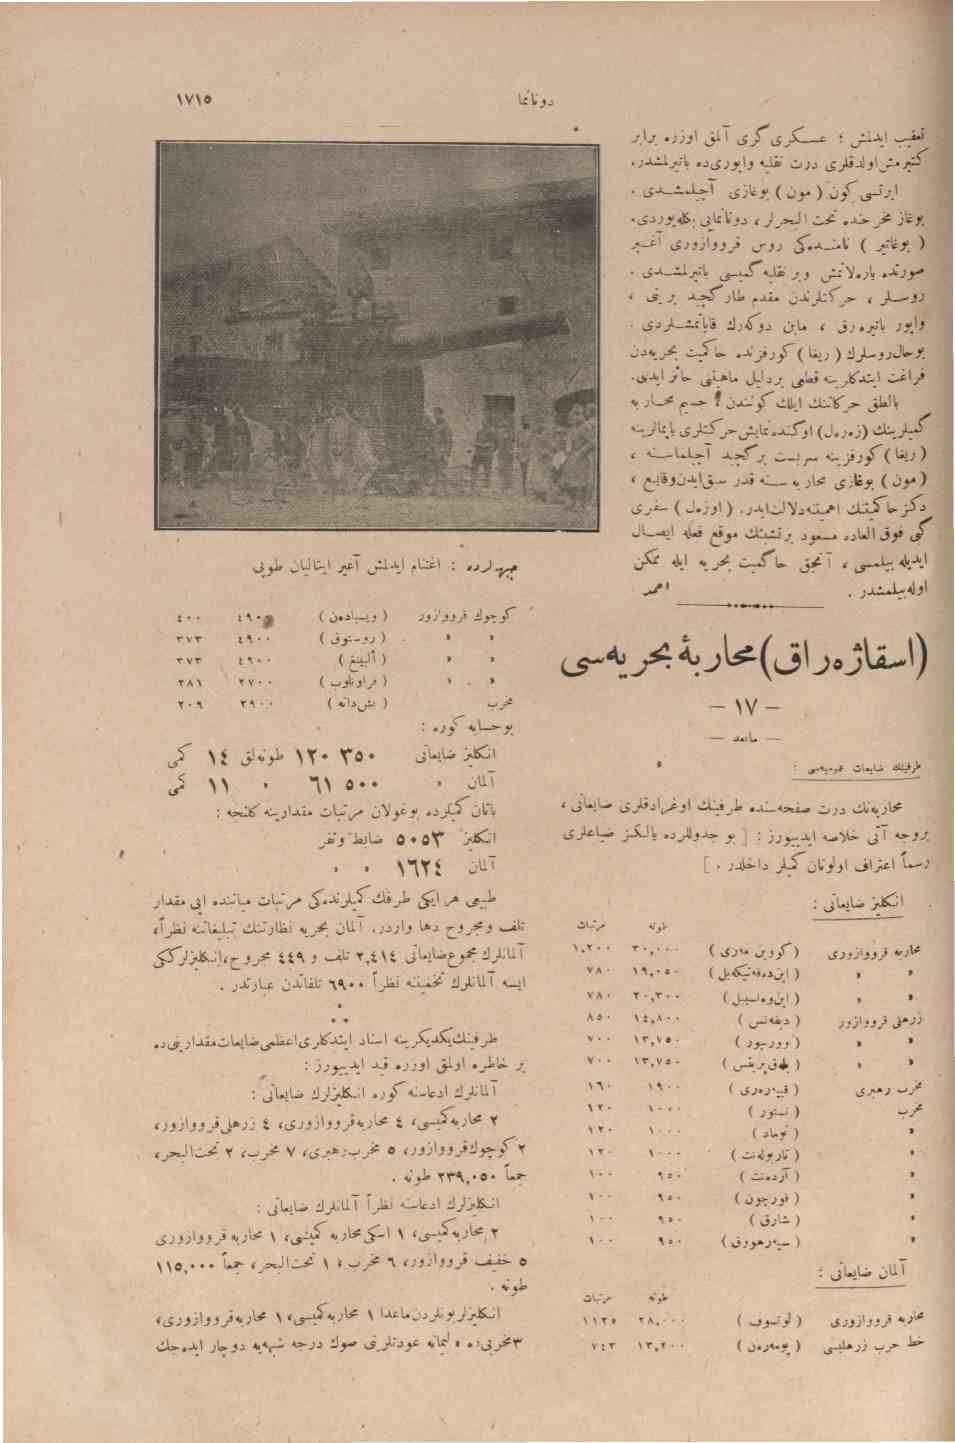 دونانما
١٧١٥
تعقيب ايدلمش ؛ عسكرى گرى آلمق اوزره برابر
كتيرمش‌اولدقلرى درت نقليه واپورى‌ده باتيرلمشدر.
ايرتسى كون ( مون ) بوغازى آچيلمشدى .
بوغاز مخرجنده تحت البحرلر ، دونانمايى بكله‌يوردى.
( بوغاتير ) نامنده‌كى روس قرووازورى آغير
صورتده ياره‌لانمش وبر نقليه گميسى باتيرلمشدى .
روسلر ، حركتلرندن مقدم طار گچيد يرينى ،
واپور باتيره‌رق ، ماين دوكه‌رك قاپاتمشلردى .
بوحال‌روسلرك ( ريغا ) كورفزنده حاكميت بحريه‌دن
فراغت ايتدكلرينه قطعى بردليل ماهيتنى حائز ايدى.
بالطق حركاتنك ايلك كونندن جسيم محاربه
گميلرينك (زه‌ره‌ل) اوكنده‌نمايش‌حركتلرى ياپمالرينه
( ريغا ) كورفزينه سربست برگچيد آچيلماسنه ،
( مون ) بوغازى محاربه سنه قدر سبق‌ايدن‌وقايع ،
دكز حاكميتنك اهميتنه‌دلالت‌ايدر. ( اوزه‌ل ) سفرى
گبى فوق العاده مسعود برتشبثك موقع فعله ايصال
ايديله بيلمسى ، آنجق حاگميت بحريه ايله ممكن
اوله‌بيلمشدر .
احمد
(اسقاژه‌راق) محاربهٔ بحريه‌سى
— ١٧ —
— مابعد —
طرفينك ضايعات عموميه‌سى :
محاربه‌نك درت صفحه‌سنده طرفينك اوغرادقلرى ضايعاتى ،
بروجه آتى خلاصه ايديیورز : [ بو جدوللرده يالكز ضياعلرى
رسماً اعتراف اولونان گميلر داخلدر . ]
انكليز ضايعاتى :
طونه مرتبات
محاربه قرووازورى ( كووين مه‌رى ) ٣٠,٠٠٠ ١,٢٠٠
» » ( اين‌ده‌فه‌تيكه‌بل ) ١٩,٠٥٠ ٧٨٠
» » ( اين‌وه‌نسيبل ) ٢٠,٣٠٠ ٧٨٠
زرهلى قرووازور ( ديفه‌نس ) ١٤,٨٠٠ ٨٥٠
» » ( ووريور ) ١٣,٧٥٠ ٧٠٠
» » ( بله‌ق‌پرينس ) ١٣,٧٥٠ ٧٠٠
مخرب رهبرى ( قيپه‌ره‌رى ) ١٩٠٠ ١٦٠
مخرب ( نستور ) ١٠٠٠ ١٢٠
» ( نوماد ) ١٠٠٠ ١٢٠
» ( تاربوله‌نت ) ١٠٠٠ ١٢٠
» ( آرده‌نت ) ٩٥٠ ١٠٠
» ( فورچون ) ٩٥٠ ١٠٠
» ( شارق ) ٩٥٠ ١٠٠
» ( سپه‌رهورق ) ٩٥٠ ١٠٠
آلمان ضايعاتى :
طونه مرتبات
محاربه قرووازورى ( لوتسوف ) ٢٨,٠٠٠ ١١٢٥
خط حرب زرهليسى ( پومه‌رەن ) ١٣,٢٠٠ ٧٤٣
جبهه‌لرده : اغتنام ايدلمش آغير ايتاليان طوپى
كوچوك قرووازور ( ويسبادەن ) ٤٩٠٠ ٤٠٠
» » ( روستوق ) ٤٩٠٠ ٣٧٣
» » ( البينغ ) ٤٩٠٠ ٣٧٣
» » ( فراونلوب ) ٢٧٠٠ ٢٨١
مخرب ( بش‌دانه ) ٢٩٠٠ ٢٠٩
بوحسابه كوره :
انكليز ضايعاتى ١٢٠ ٣٥٠ طونه‌لق ١٤ گمى
آلمان » ٦١ ٥٠٠ » ١١ گمى
باتان گميلرده بوغولان مرتبات مقدارينه كلنجه :
انكليز ٥٠٥٣ ضابط ونفر
آلمان ١٦٢٤ » »
طبيعى هر ايكى طرفك گميلرنده‌كى مرتبات مياننده ايى مقدار
تلف ومجروح دها واردر. آلمان بحريه نظارتنك تبليغاتنه نظراً،
آلمانلرك مجموع‌ضايعاتى ٢,٤١٤ تلف و ٤٤٩ مجروح،انكليزلركى
ايسه آلمانلرك تخمیننه نظراً ٦٩٠٠ تلفاتدن عبارتدر .
* *
طرفينك‌يكديكرينه اسناد ايتدكلرى‌اعظمى‌ضايعات‌مقدارينى‌ده
بر خاطره اولمق اوزره قيد ايديیورز :
آلمانلرك ادعاسنه كوره انكليزلرك ضايعاتى :
٢ محاربه‌گميسى، ٤ محاربه‌قرووازورى، ٤ زرهلى‌قرووازور،
٢ كوچوك‌قرووازور، ٥ مخرب‌رهبرى، ٧ مخرب، ٢ تحت‌البحر،
جمعاً ٢٣٩,٠٥٠ طونه .
انكليزلرك ادعاسنه نظراً آلمانلرك ضايعاتى :
٢ محاربه‌گميسى، ١ اسكى‌محاربه گميسى، ١ محاربه قرووازورى
٥ خفيف قرووازور، ٦ مخرب، ١ تحت‌البحر، جمعاً ١١٥,٠٠٠
طونه .
انكليزلر بونلردن‌ماعدا ١ محاربه‌گميسى، ١ محاربه‌قرووازورى،
٣مخربى‌ده » ليمانه عودتلرنى صوك درجه شبهه‌يه دوچار ايده‌جك